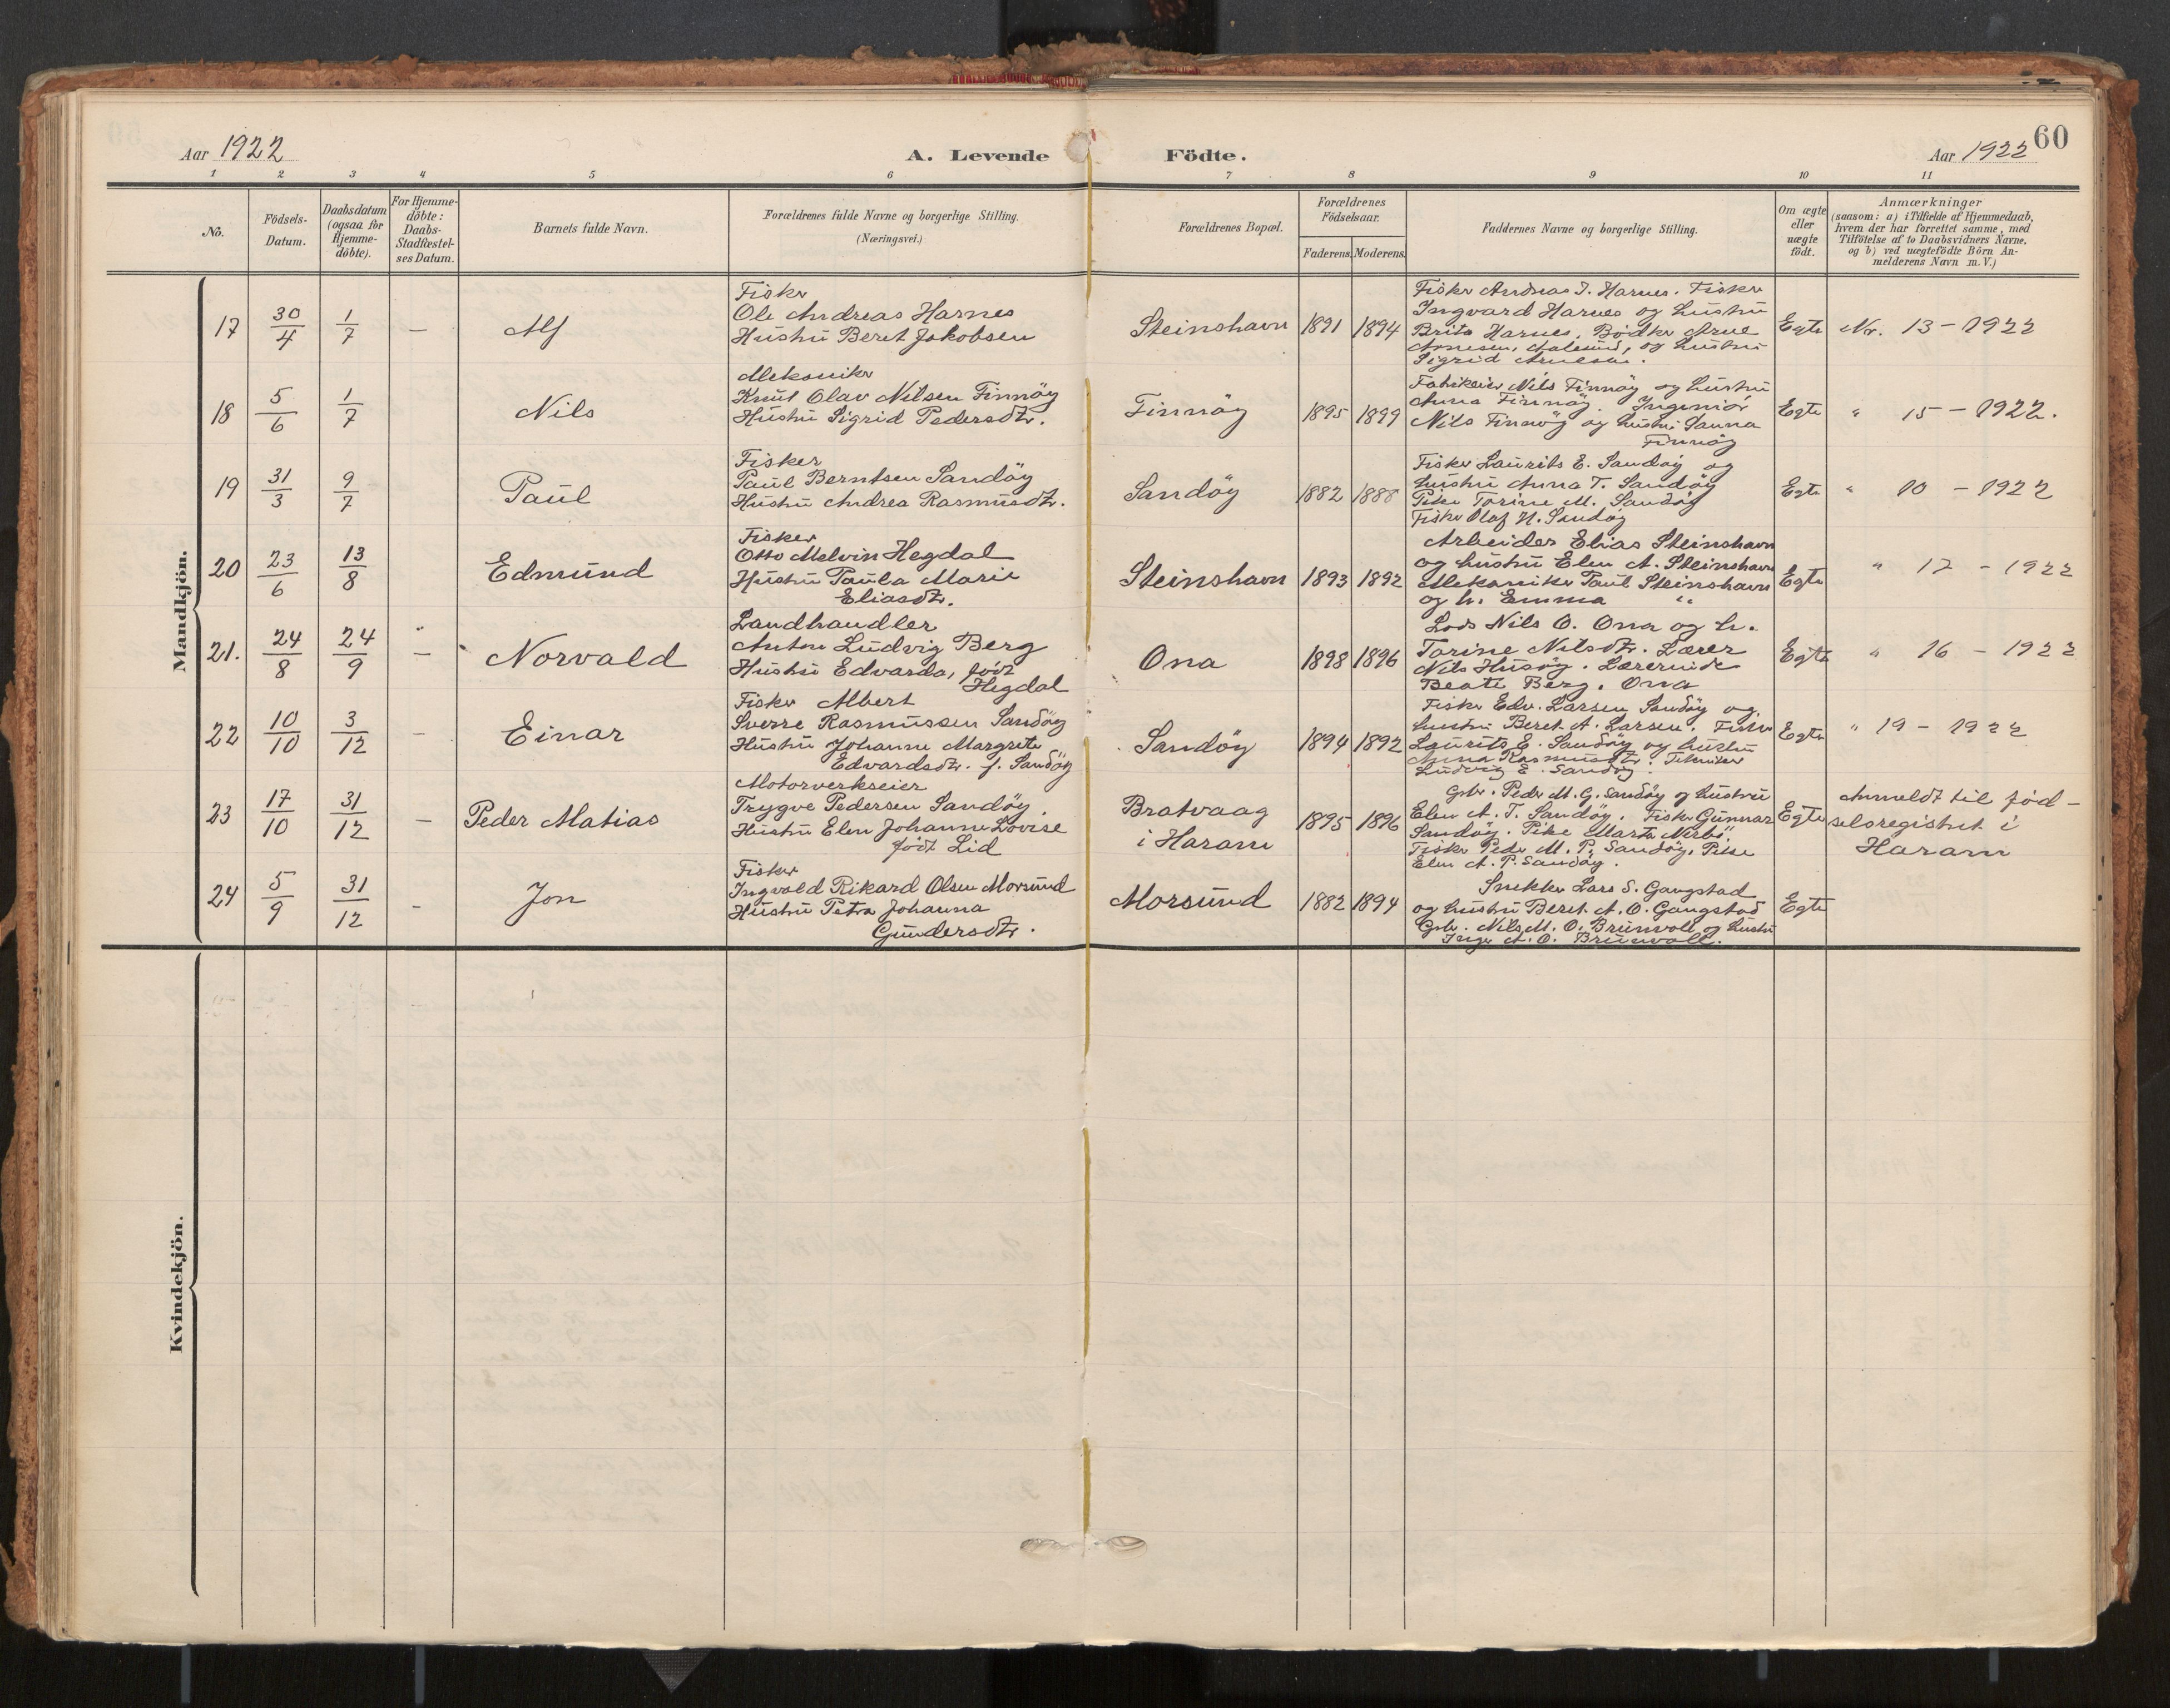 60
Aar 1922
A. Levende Födte.
Aar 1922
1 2 3 4 5 6 7 8 9 10 11
No.
Födsels-
Datum.
Daabsdatum
(ogsaa for
Hjemme-
döbte).
For Hjemme-
döbte:
Daabs-
Stadfæstel-
ses Datum.
Barnets fulde Navn.
Forældrenes fulde Navne og borgerlige Stilling.
(Næringsvei.)
Forældrenes Bopæl.
Forældrenes
Födselsaar.
Faderens. Moderens.
Faddernes Navne og borgerlige Stilling.
Om ægte
eller
uægte
födt.
Anmærkninger
(saasom: a) i Tilfælde af Hjemmedaab,
hvem der har forrettet samme, med
Tilfötelse af to Daabsvidners Navne,
og b) ved uægtefödte Börn An-
melderens Navn m. V.)
Mandkjön.
17 30/4 1/7 — Alf
Fisker
Ole Andreas Harnes
Hustru Beret Jakobsen
Steinshavn 1891 1894
Fisker Andreas J. Harnes. Fisker
Ingvard Harnes og hustru
Brita Harnes, Bødker Arne
Arnesen, Aalesund, og hustru
Sigrid Arnesen.
Egte Nr. 13 - 1922
18 5/6 1/7 Nils
Mekaniker
Knut Olav Nilsen Finnöy
Hustru Sigrid Pedersdtr.
Finnöy 1895 1899
Fabrikeier Nils Finnöy og hustru
Anna Finnöy. Ingeniör
Nils Finnöy og hustru Sanna
Finnöy
Egte " 15 - 1922.
19 31/3 9/7 Paul
Fisker
Paul Berntsen Sandöy
Hustru Andrea Rasmusdtr.
Sandöy 1882 1888
Fisker Laurits E. Sandöy og
hustru Anna T. Sandöy
Pike Torine M. Sandöy
Fisker Olaf N. Sandöy
Egte " 10 - 1922
20 23/6 13/8 Edmund
Fisker
Otto Melvin Hegdal
Hustru Paula Marie
Eliasdtr.
Steinshavn 1893 1892
Arbeider Elias Steinshavn
og hustru Elen A. Steinshavn
Mekaniker Paul Steinshavn
og h. Emma "
Egte " 17 - 1922
21. 24/8 24/9 — Norvald
Landhandler
Anton Ludvig Berg
Hustru Edvarda, født
Hegdal
Ona 1898 1896
Lods Nils O. Ona og h.
Torine Nilsdtr. Lærer
Nils Husöy. Lærerinde
Beate Berg. Ona
Egte " 16 - 1922
22 10/10 3/12 — Einar
Fisker Albert
Sverre Rasmussen Sandöy
Hustru Johanne Margrete
Edvardsdtr. f. Sandöy
Sandöy 1894 1892
Fisker Edv. Larsen Sandöy og
hustru Beret A. Larsen. Fisker
Laurits E. Sandöy og hustru
Anna Rasmusdtr.
Ludvig E. Sandöy.
Egte " 19 - 1922
23 17/10 31/12 — Peder Matias
Motorverkseier
Trygve Pedersen Sandöy.
Hustru Elen Johanne Lovise
født Lid
Bratvaag
i Haram
1895 1896
Grbr. Peder M. G. Sandöy og hustru
Elen A. T. Sandöy. Fisker Gunnar
Sandöy. Pike Marta
Fisker Peder M. P. Sandöy, Pike
Elen A. P. Sandöy.
Egte
Anmeldt til fød-
selsregistret i
Haram
24 5/9 31/12 - Jon
Fisker
Ingvald Rikard Olsen Morsund
Hustru Petra Johanna
Gundersdtr.
Morsund 1882 1894
Snekker Lars S. Gangstad
og hustru Beret A. O. Gangstad
Grbr. Nils M. O. Brunvoll og hustru
Inge A. O. Brunvoll.
Egte
Kvindekjön.